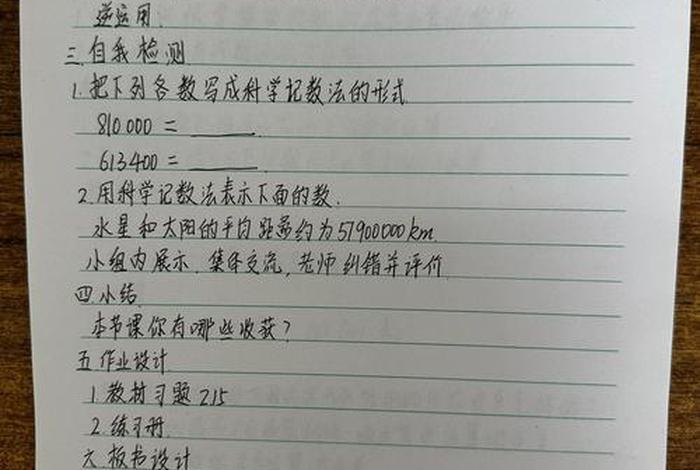 逆运用.
三 自我检测
1. 把下列各数写成科学记数法的形式
810 000 = ______.
613400 = ______
2. 用科学记数法表示下面的数.
水星和太阳的平均距离约为57900000km.
小组内展示, 集体交流, 老师纠错并评价
四 小结
本节课你有哪些收获?
五 作业设计
1. 教材习题2.15
2. 练习册.
六 板书设计